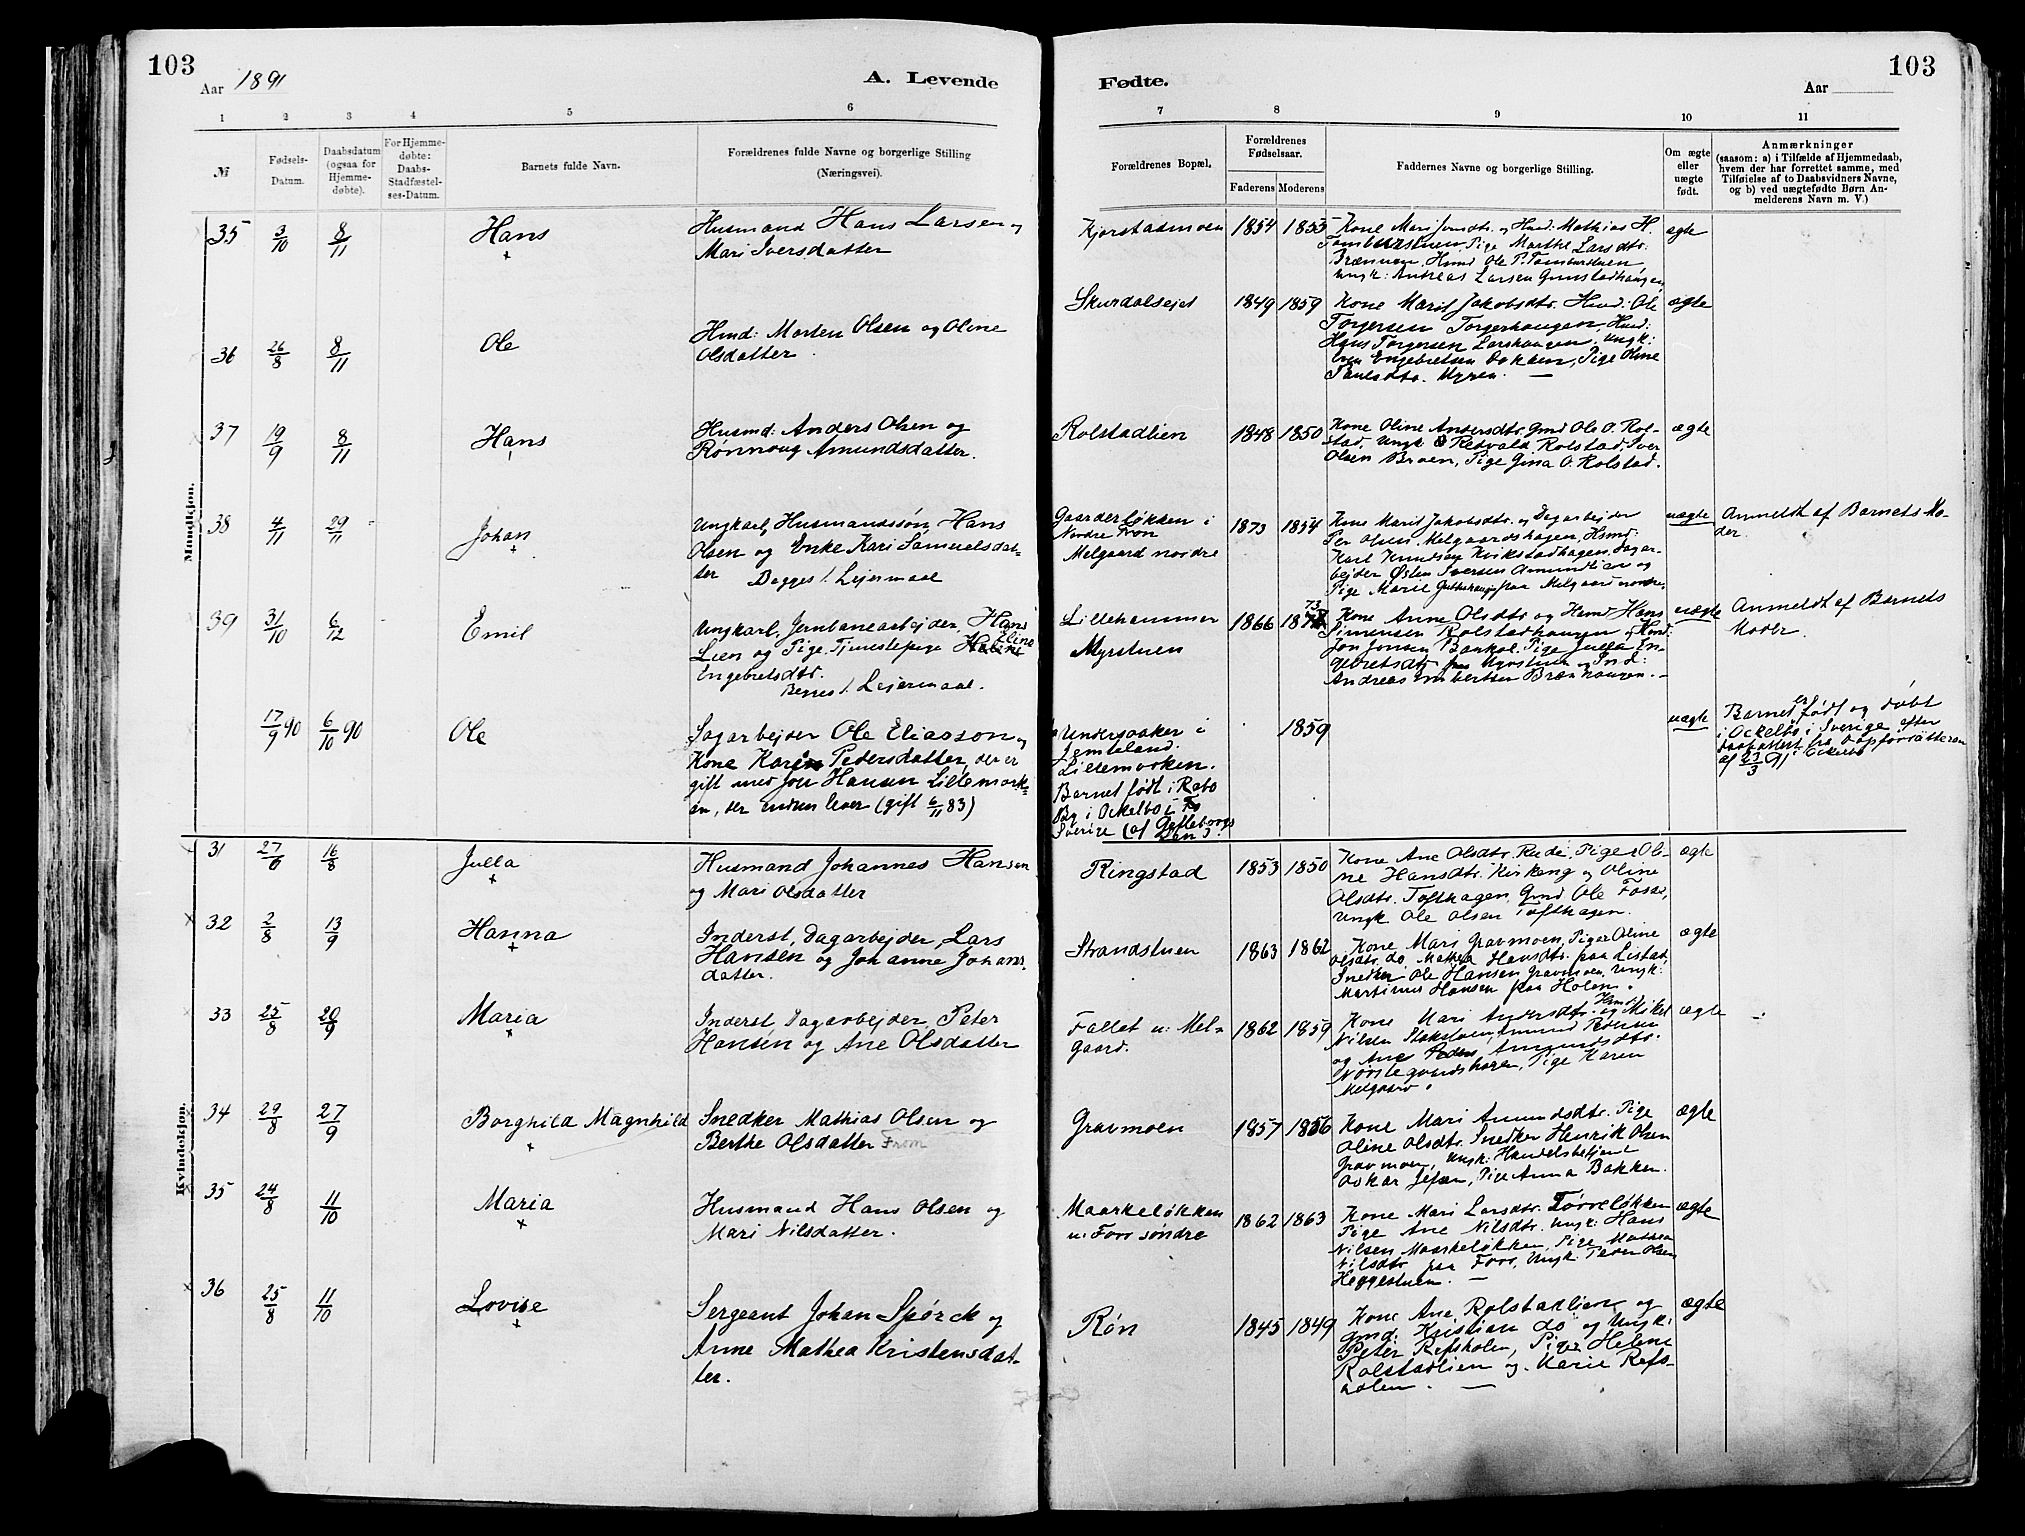 103
Aar 1891
A. Levende
Fødte.
Aar
103
1 2 3 4 5 6 7 8 9 10 11
№
Fødsels-
Datum.
Daabsdatum
(ogsaa for
Hjemme-
døbte).
For Hjemme-
døbte:
Daabs-
Stadfæstel-
ses-Datum.
Barnets fulde Navn.
Forældrenes fulde Navne og borgerlige Stilling
(Næringsvei).
Forældrenes Bopæl.
Forældrenes
Fødselsaar.
Faderens Moderens
Faddernes Navne og borgerlige Stilling.
Om ægte
eller
uægte
født.
Anmærkninger
(saasom: a) i Tilfælde af Hjemmedaab,
hvem der har forrettet samme, med
Tilføielse af to Daabsvidners Navne,
og b) ved uægtefødte Børn An-
melderens Navn m. V.)
Mandkjøn.
35 3/10 8/11 Hans
Husmand Hans Larsen og
Mari Iversdatter
Kjorstadmoen 1854 1855
Brænnen, Hmd Ole P.
Ungk: Andreas Larsen
ægte
36 26/8 8/11 Ole
Hmd: Morten Olsen og Oline
Olsdatter.
Skurdalsejet 1849 1859
Kone Marit Jakobsdtr. Hmd: Ole
Torgersen Torgerhaugen, Hmd:
Hans Torgersen Larshaugen, Ungk:
Engebretsen Bakken, Pige Oline
Paulsdtr. Myren.
ægte
37 19/9 8/11 Hans
Husmd: Anders Olsen og
Rønnoug Amundsdatter.
Rolstadlien 1848 1850
Kone Oline Andersdtr. Gmd Ole O. Rol-
stad, Ungk O Redvald Rolstad, Iver
Olsen Broen, Pige Gina O. Rolstad.
ægte
38 4/11 29/11 Johan
Ungkarl, Husmandssøn, Hans
Olsen og Enke Kari Samuelsdat-
ter Begges 1. Lejermaal
Gaarderløkken i
Nordre Fron
Melgaard nordre
1873 1854
Kone Marit Jakobsdtr. og Dagarbejder
Per Olsen, Melgaardshagen, Hsmd:
Karl Knudsen Kirkstadhagen, Dagar-
bejder Østen Iversen Amundlien og
Pige Marie paa Melgaard nordre.
uægte
Anmeldt af Barnets Mo-
der.
39 31/10 6/12 Emil
Ungkarl, Jernbanearbejder, Hans
Lien og Pige Tjenestepige Eline
Engebretsdtr.
Begges 1. Lejermaal.
Lillehammer
Myrstuen
1866 1873
Kone Anne Olsdtr og Hsmd Hans
Simensen Rolstadhaugen og Hmd:
Jon Jonsen Bankol. Pige Julla En-
gebretsdtr Myrstuen og Ind:
Andreas Brænhaugen.
uægte
Anmeldt af Barnets
Moder.
17/9 90 6/10 90 Ole
Sagarbejder Ole Eliasson og
Kone Karen Pedersdatter, der er
gift med Jon Hansen Lillemork-
en, der endnu lever (gift 6/11 83)
Undersaaker i
Jemteland.
Lillemorken.
Barnet født i Rabo
By i Ockelbo i
Sverige (af Gefleborgs
Len).
1859
uægte
Barnet er født og døbt
i Ockelbo i Sverige efter
daabattest fra
af 23/3 91 i Ockelbo
Kvindekjøn.
31 27/6 16/8 Julla
Husmand Johannes Hansen
og Mari Olsdatter
Ringstad 1853 1850
Kone Ane Olsdtr. Rude, Pige Oli-
ne Hansdtr. Kirkeng og Oline
Olsdtr. Tofthagen. Gmd Ole Fosse,
Ungk Ole Olsen Tofthagen.
ægte
32 2/8 13/9 Hanna
Inderst, Dagarbejder, Lars
Hansen og Johanne Johans-
datter.
Strandstuen 1863 1862
Kone Mari Gravmoen, Piger Oline
Olsdtr. do Mathea Hansdtr. paa Listad,
Snedker Ole Hansen Gravmoen, Ungk:
Martinus Hansen paa Holen.
ægte
33 25/8 20/9 Maria
Inderst, Dagarbejder, Peter
Hansen og Ane Olsdatter
Fallet u: Mel-
gaard.
1862 1859
Kone Mari Andersdtr. og Hsmd Mikel
Nilsen Amund
og Ane Amundsdtr.
Pige Karen
Melgaard.
ægte
34 29/8 27/9 Borghild Magnhild
Snedker Mathias Olsen og
Berthe Olsdatter From
Gravmoen 1857 1856
Kone Mari Amundsdtr. Pige
Oline Olsdtr. Snedker Henrik Olsen
Gravmoen, Ungk: Handelsbetjent
Oskar Jefsen, Pige Anna Bakken.
ægte
35 24/8 11/10 Maria
Husmand Hans Olsen og
Mari Nilsdatter.
Maarkeløkken
u: Forr søndre
1862 1863
Kone Mari Larsdtr. Tørreløkken
Pige Ane Nilsdtr. Ungk: Hans
Nilsen Maarkeløkken, Pige Mathea
Nilsdtr paa Forr, Ungk Peder Olsen
Heggestuen.
ægte
36 25/8 11/10 Lovise
Sergeant Johan Spørck og
Anne Mathea Kristensdat-
ter.
Røn 1845 1849
Kone Ane Rolstadlien og
Gmd: Kristian do og Ungk:
Peter Refsholen, Piger Helene
Rolstadlien og Marie Refs-
holen.
ægte